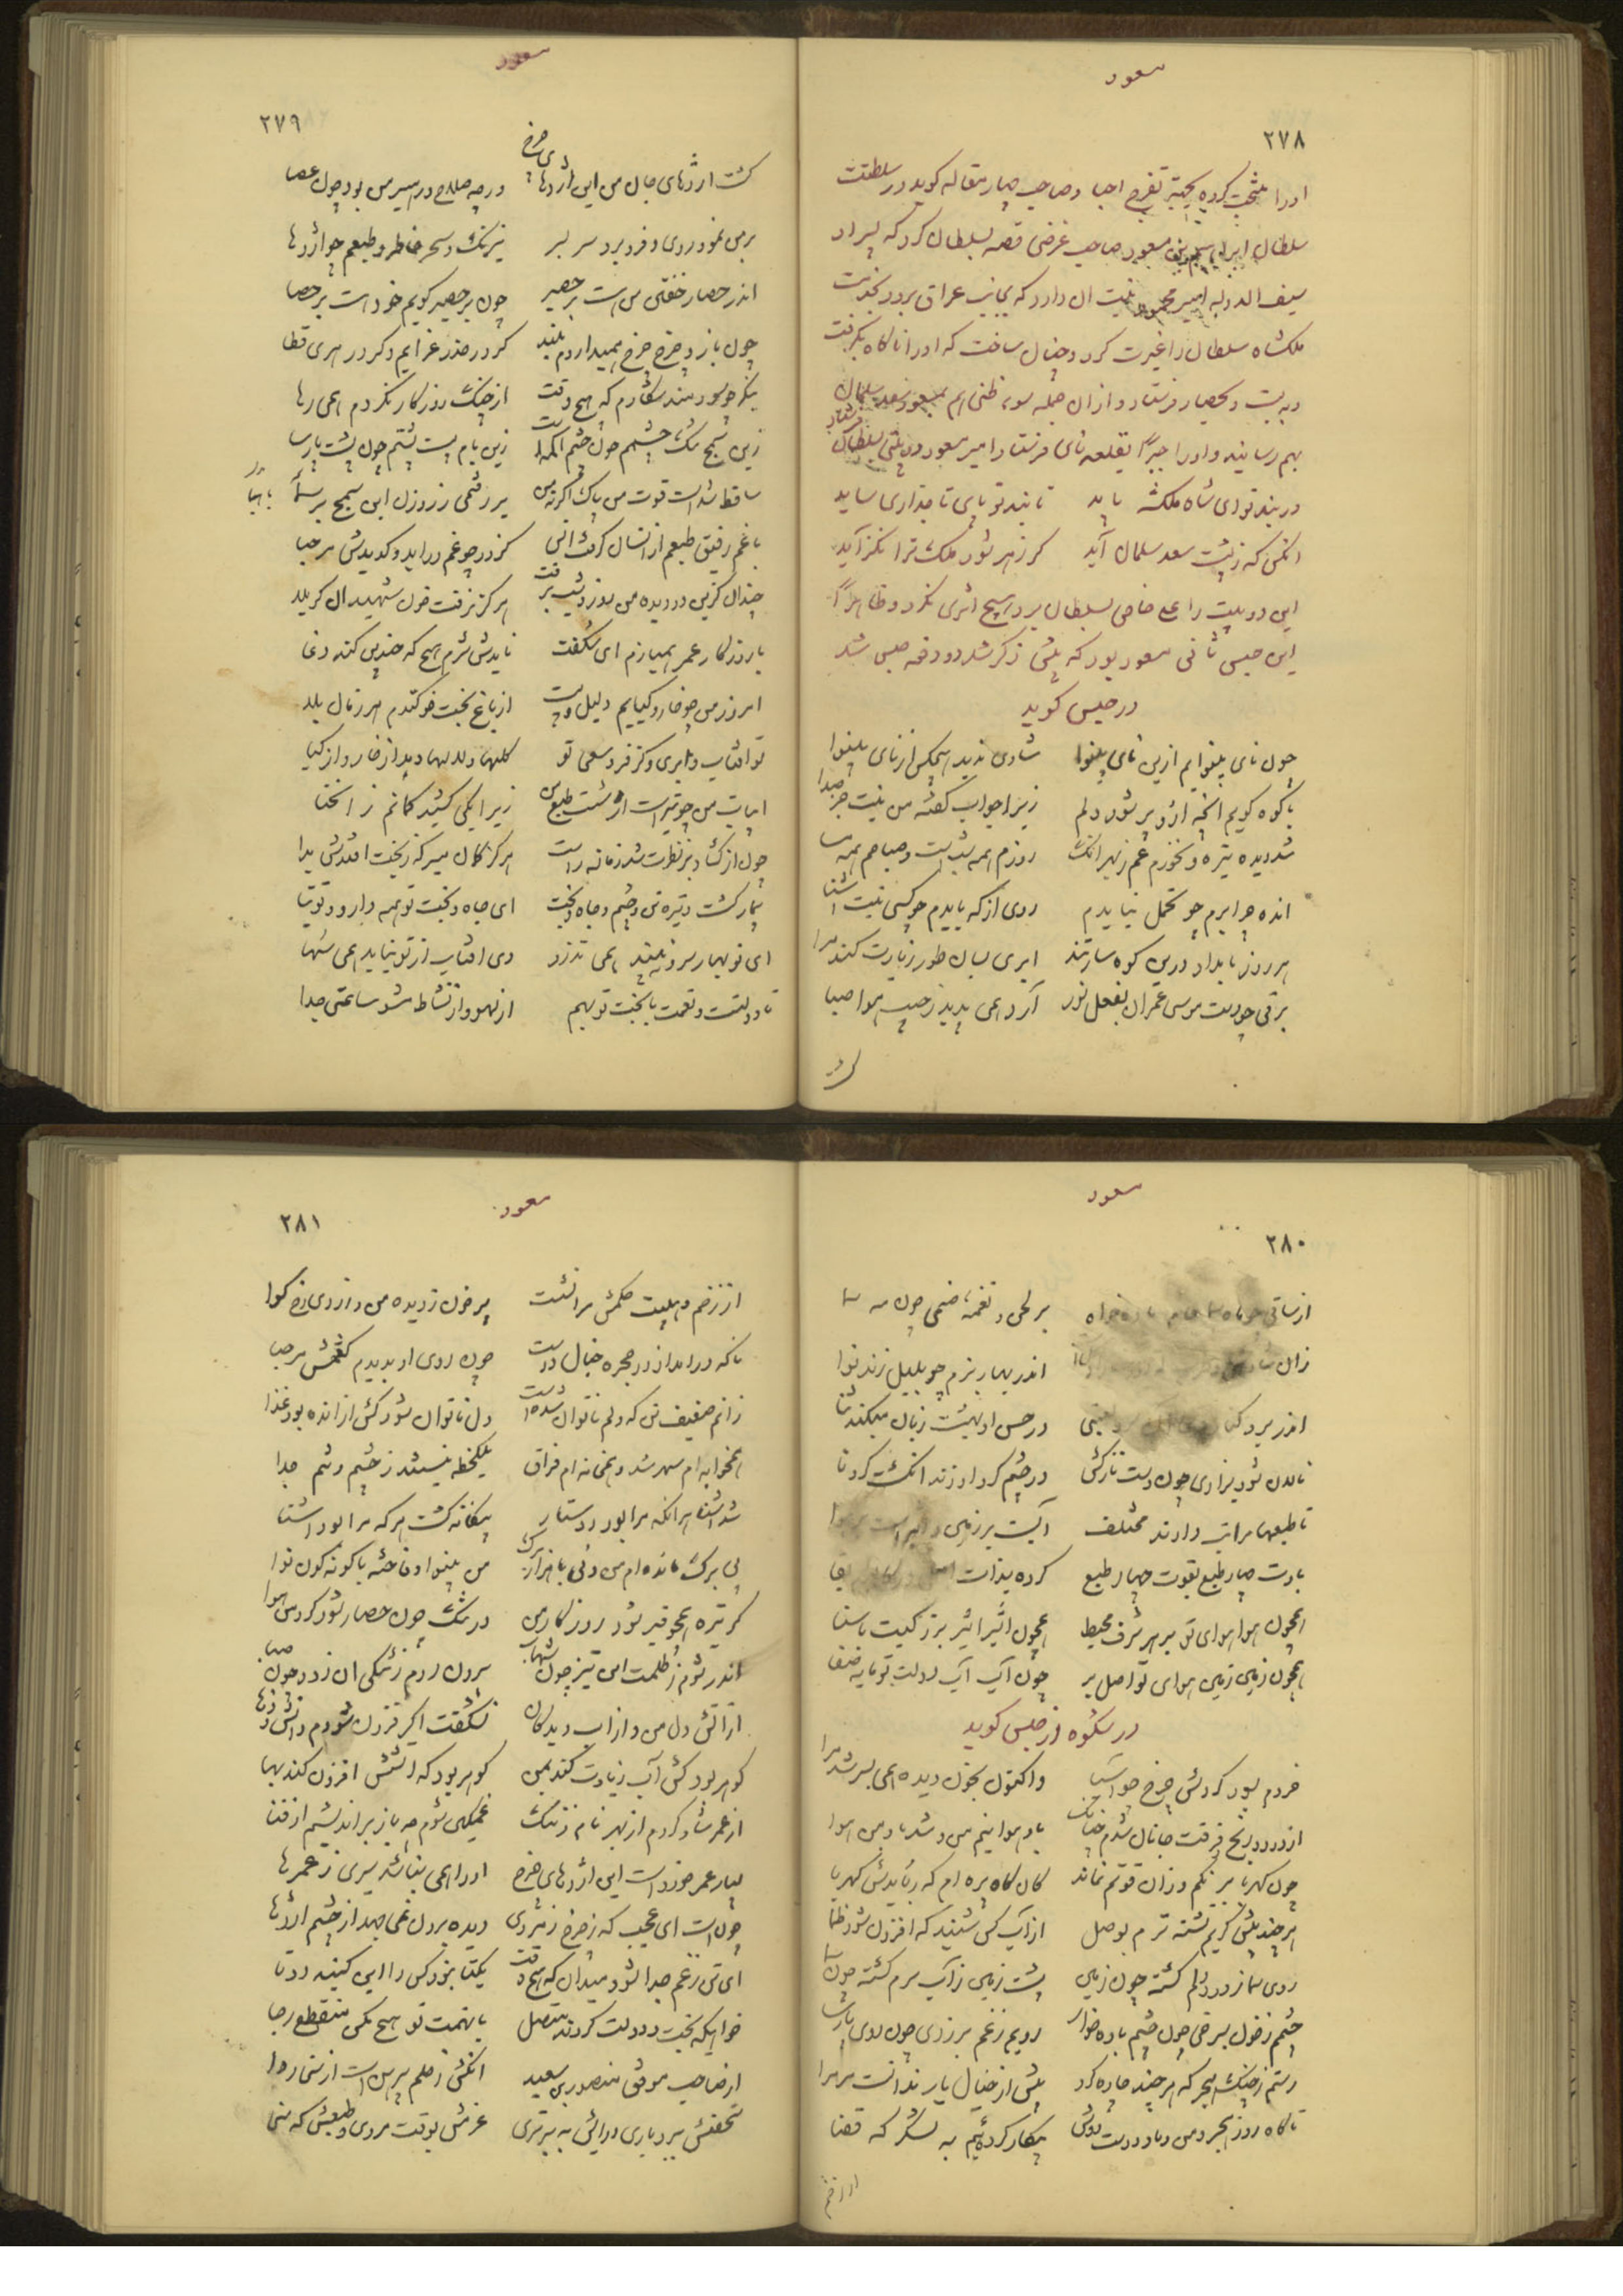 سعود
۲۷۸
اورا منتخب کرده بجهة تفرج احبا و صاحب چهار مقاله گوید در سلطنت
سلطان ابراهیم بن مسعود صاحب غرضی قصه بسلطان کرد که پسر او
سیف الدوله امیر محمود نیت ان دارد که بجانب عراق برود بخدمت
ملکشاه سلطان را غیرت کرد و چنان ساخت که او را ناگاه بگرفت
و به بست و بحصار فرستاد و از ان جمله سوء ظنی هم بمسعود سعد سلمان
بهم رسانید و او را جبراً بقلعه نای فرستاد امیر مسعود دو بیتی بسلطان فرستاد
در بند تو ای شاه ملکشه باید تا بند تو پای تاجداری ساید
انکس که ز پشت سعد سلمان آید گر زهر شود ملک ترا نگزاید
این دو بیت را علی خاص بسلطان برد هیچ اثری نکرد و ظاهراً
این حبس ثانی مسعود بود که پیش ذکر شد دو دفعه حبس شد
در حبس گوید
چون نای بینوایم ازین نای بینوا شادی ندید هیچکس از نای بینوا
با کوه گویم انچه ازو پر شود دلم زیرا جواب گفته من نیست جز صدا
شد دیده تیره و نخورم غم ز بهر انک روزم همه شب است و صباحم همه مسا
انده چرا برم چو تحمل نبایدم روی از که بایدم چو کسی نیست اشنا
هر روز بامداد درین کوهسار تند ابری بسان طور زیارت کند مرا
برقی چو دست موسی عمران بفعل نور آرد همی پدید ز جیب هوا ضیا
سعود
۲۷۹
گشت اژدهای جان من این اژدهای چرخ ورچه صلاح درهبر من بود چون عصا
بر من نمود روی و فرو برد سر بسر نیرنک و سحر خاطر و طبعم چو اژدها
اندر حصار خفتن من است بر حصیر چون بر حصیر گویم خود است بر حصا
چون باز و چرخ چرخ همیداردم ببند گر در حذر غرابم و گر در رهبری قطا
بنگر چو سودمند شکارم که هیچ وقت از چنک روزگار نگردم همی رها
زین سمج تنک چشمم چون چشم اکمه است زین بام پست پشتم چون پشت پارسا
ساقط شداست قوت من پاک اگر نه من بر رفتمی ز روزن این سمج بر سما
با غم رقیق طبعم ازانسان گرفت انس کز در چو غم دراید گویدش مرحبا
چندان کزین دو دیده من روز و شب برفت هرگز نرفت خون شهیدان کربلا
با روزگار عمر همیبازم ای شگفت نایدش شرم هیچ که چندین کند دغا
امروز من چو خار و گیایم ذلیل و پست از باغ بخت خوکندم هر زمان بلا
تو افتاب و ابری و کز فر و سعی تو گلها و لالها دمد از خار و از گیا
ابیات من چو تیر است از شست طبع من زیرا یکی کشیده کمانم ز انحنا
چون از گشاد برنظرت شد زمانه راست هرگز گمان مبر که ز بخت افتدش بدا
بیمار گشت و تیره تن و چشم و جاه و بخت ای جاه و بخت تو همه دارو و توتیا
ای نوبهار سرو نبیند همی تذرو وی افتاب از تو نیابد همی سها
تا دولتست و نعمت با بخت تو بهم از لهو و از نشاط مشو ساعتی جدا
سعود
۲۸۰
بر لحن و نغمه صنمی چون مه سما
اندر بهار بزم چو بلبل زند نوا
در حسن او بهشت زبان میکند ثنا
نالان شود بزاری چون دست نازکش در چشم گرد او زند انگشت گردنا
تا طبعها مراتب دارند مختلف
بادت چهار طبع بقوت چهار طبع کرده بذات
همچون هوا هوای تو بر هر شرف محیط همچون اثیر اثیر بزرگیت با سنا
همچون زمین زمین هوای تو اصل بر چون آب آب دولت تو مایه صفا
در شکوه از حبس گوید
خردم بسود گردش چرخ چو آسیا و اکنون بخون دیده همی بسر شد مرا
از درد و رنج فرقت جانان شدم چنانک باد هوا نیم من و شد باد من هوا
چون کهربا برنگم و زان قوتم نماند کان کاه بره ام که ربایدش کهربا
هر چند بیش گریم تشنه ترم بوصل از آب کس شنید که افزون شود ظما
روی سما ز درد دلم گشته چون زمین پشت زمین ز آب سرم گشته چون سما
چشم ز خون بسرخی چون چشم باده خوار رویم ز غم بزردی چون روی پارسا
رستم ز چنک هجر که هر چند چاره کرد بیش از خیال یار ندانست مر مرا
ناگاه روز هجر من و یاد دوست دوش بیکار کرده ئیم به لشکر که قضا
از زخم
سعود
۲۸۱
از زخم و هیبت حکمش مرا نشست پر خون ز دیده من و از روی رخ گوا
ناگه درامد از در حجره خیال دوست چون روی او بدیدم گفتمش مرحبا
زانم ضعیف تن که دلم ناتوان شده است دل ناتوان شود کش از انده بود غذا
همخوابه ام سهر شد و همخانه ام فراق یکلحظه نیستند ز چشم و تنم جدا
شد اشنا هر انکه مرا بود دوستار بیگانه گشت هر که مرا بود اشنا
بی برگ مانده ام من و نی با هزار برگ من بینوا و فاخته با گونه گون نوا
گر تیره همچو قیر شود روزگار من در تنگ چون حصار شود گرد من هوا
اندر شوم ز ظلمت این تیز چون شهاب بیرون روم ز تنگی ان زود چون صبا
از اتش دل من و از اب دیدگان نشگفت اگر فزون شودم دانش و ذکا
گوهر بود کش آب زیادت کند ثمن گوهر بود که اتشش افزون کند بها
از عمر شاد کردم از بهر نام و ننگ غمگین شوم چه باز براندیشم از فنا
بسیار عمر خورداست این اژدهای چرخ او را همی نباشد سیری ز عمرها
چون است ای عجب که ز چرخ زمردی دیده برون نمی جهد از چشم اژدها
ای تن ز غم جدا شو و میدان که هیچ وقت یکتا نبود کس را این گنبد دوتا
خواهی که بخت و دولت گردند متصل با نهمت تو هیچ مکن منقطع رجا
از صاحب موفق منصور بن سعید انکش ز حلم پیرهن است از سخا ردا